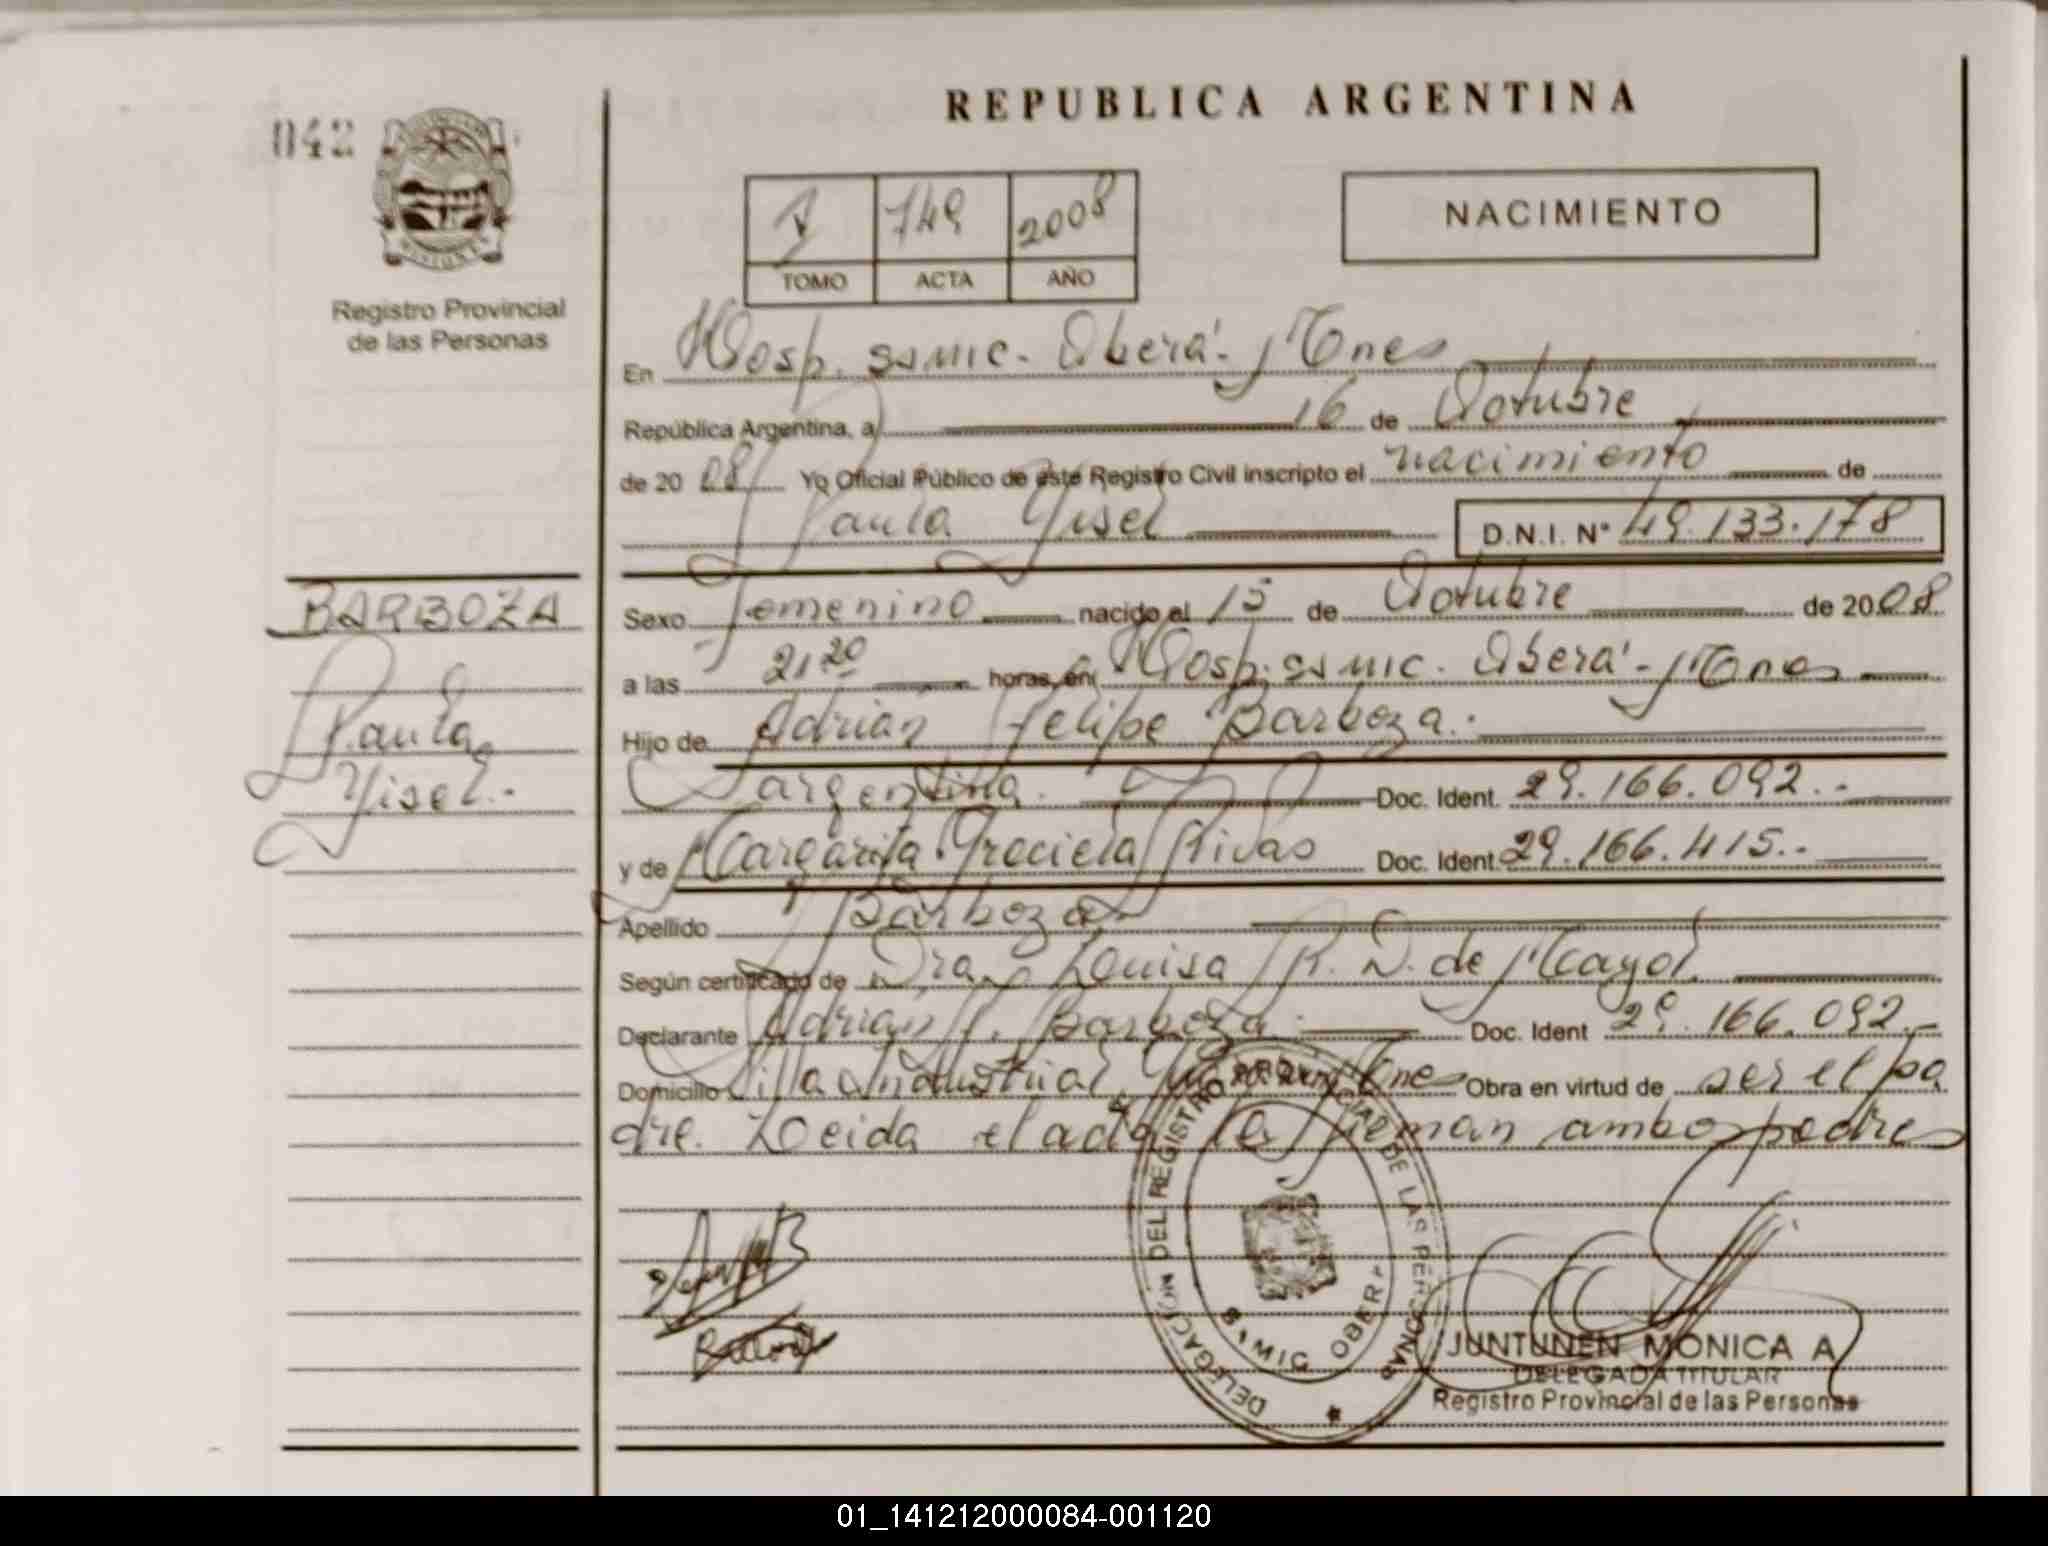 042
REPUBLICA ARGENTINA
749 2008
TOMO ACTA AÑO
NACIMIENTO
Registro Provincial
de las Personas
En Hosp. ssmic. Oberá - Mnes
República Argentina, a 16 de Octubre
de 2008 Yo Oficial Público de este Registro Civil inscripto el nacimiento de
Paula Yisel D.N.I. Nº 49.133.178
BARBOZA
Paula
Yisel.-
Sexo femenino nacido el 15 de Octubre de 2008
a las 21 20 horas, en Hosp. ssmic. Oberá - Mnes
Hijo de Adrian Felipe Barboza.
argentina. Doc. Ident. 29.166.092.-
y de Margarita Graciela Rivas Doc. Ident. 29.166.415.-
Apellido Barboza
Según certificado de Dra. Louisa R. D. de Mayol
Declarante Adrian F. Barboza Doc. Ident 29.166.092.-
Domicilio Villa Industrial Mnes Obra en virtud de ser el pa
dre. Leida el acta la firman ambos padres
DELEGACIÓN DEL REGISTRO PROVINCIAL DE LAS PERSONAS
OBERA
JUNTUNEN MONICA A
DELEGADA TITULAR
Registro Provincial de las Personas
01_141212000084-001120